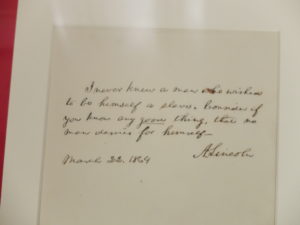 I never knew a man who wished
to be himself a slave. Consider if
you know any good thing, that no
man desires for himself
March 22, 1864
A. Lincoln